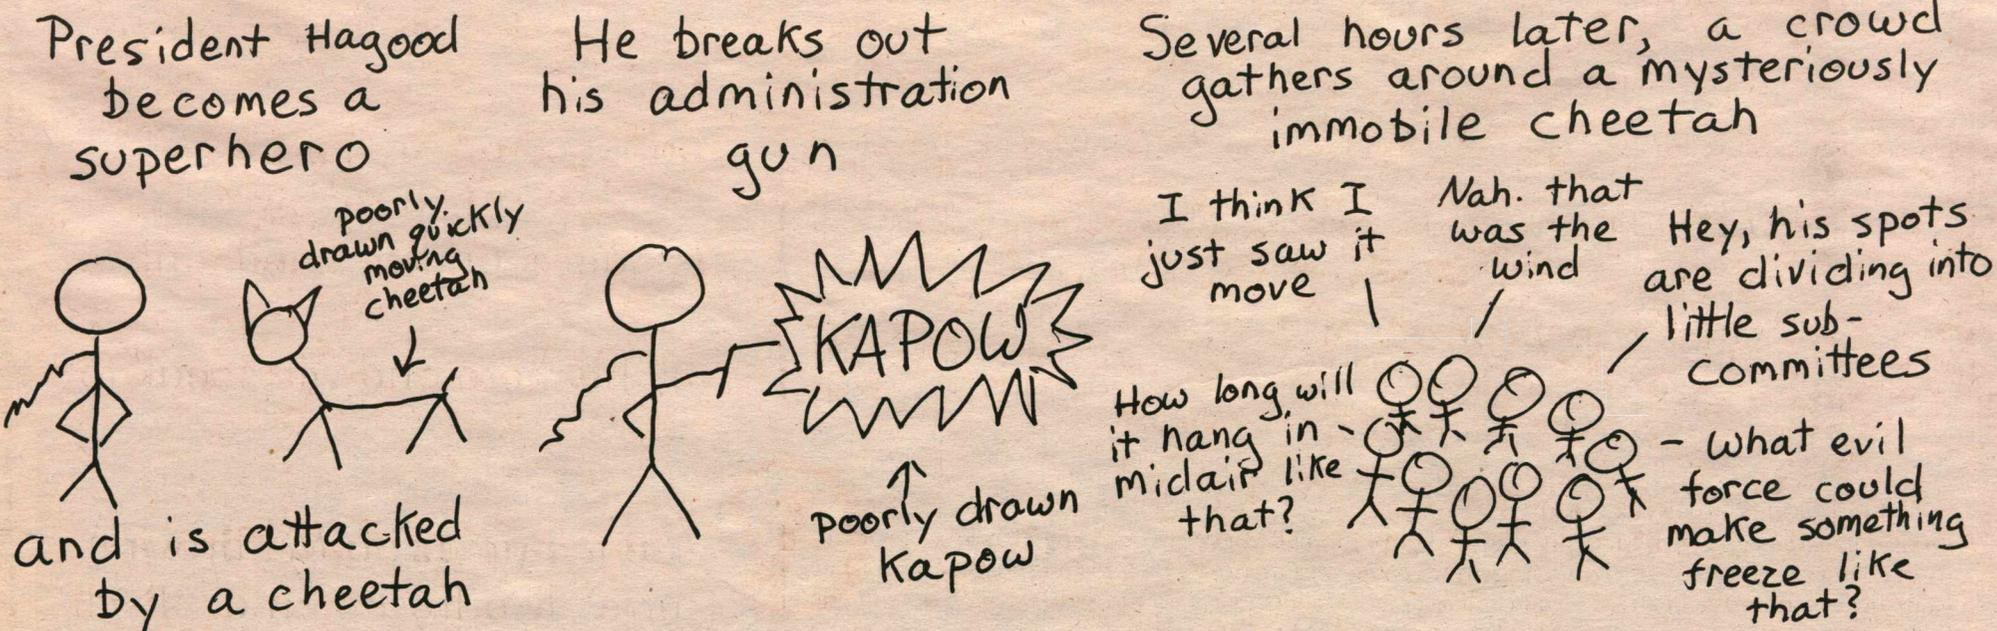 President Hagood
becomes a
superhero
poorly
drawn quickly
moving
cheetah
and is attacked
by a cheetah
He breaks out
his administration
gun
KAPOW
poorly drawn
kapow
Several hours later, a crowd
gathers around a mysteriously
immobile cheetah
I think I
just saw it
move
Nah. that
was the
wind
Hey, his spots
are dividing into
little sub-
committees
How long will
it hang in
midair like
that?
- what evil
force could
make something
freeze like
that?